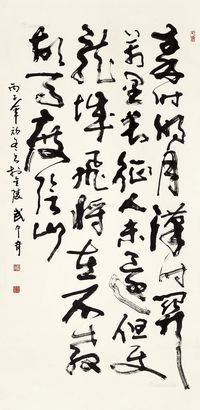 秦时明月漢时關
萬里長征人未還但使
龍城飛将在不教
胡馬度陰山
丙子年初冬於金陵武中奇